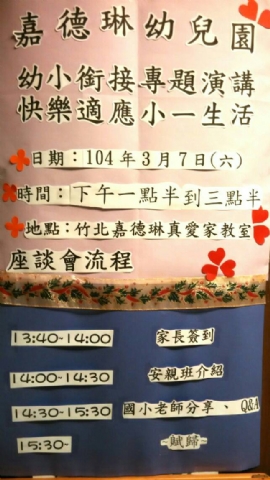 嘉德琳幼兒園
幼小銜接專題演講
快樂適應小一生活
日期：104年3月7日(六)
時間：下午一點半到三點半
地點：竹北嘉德琳真愛家教室
座談會流程
13:40-14:00 家長簽到
14:00-14:30 安親班介紹
14:30-15:30 國小老師分享、Q&A
15:30- ~賦歸~